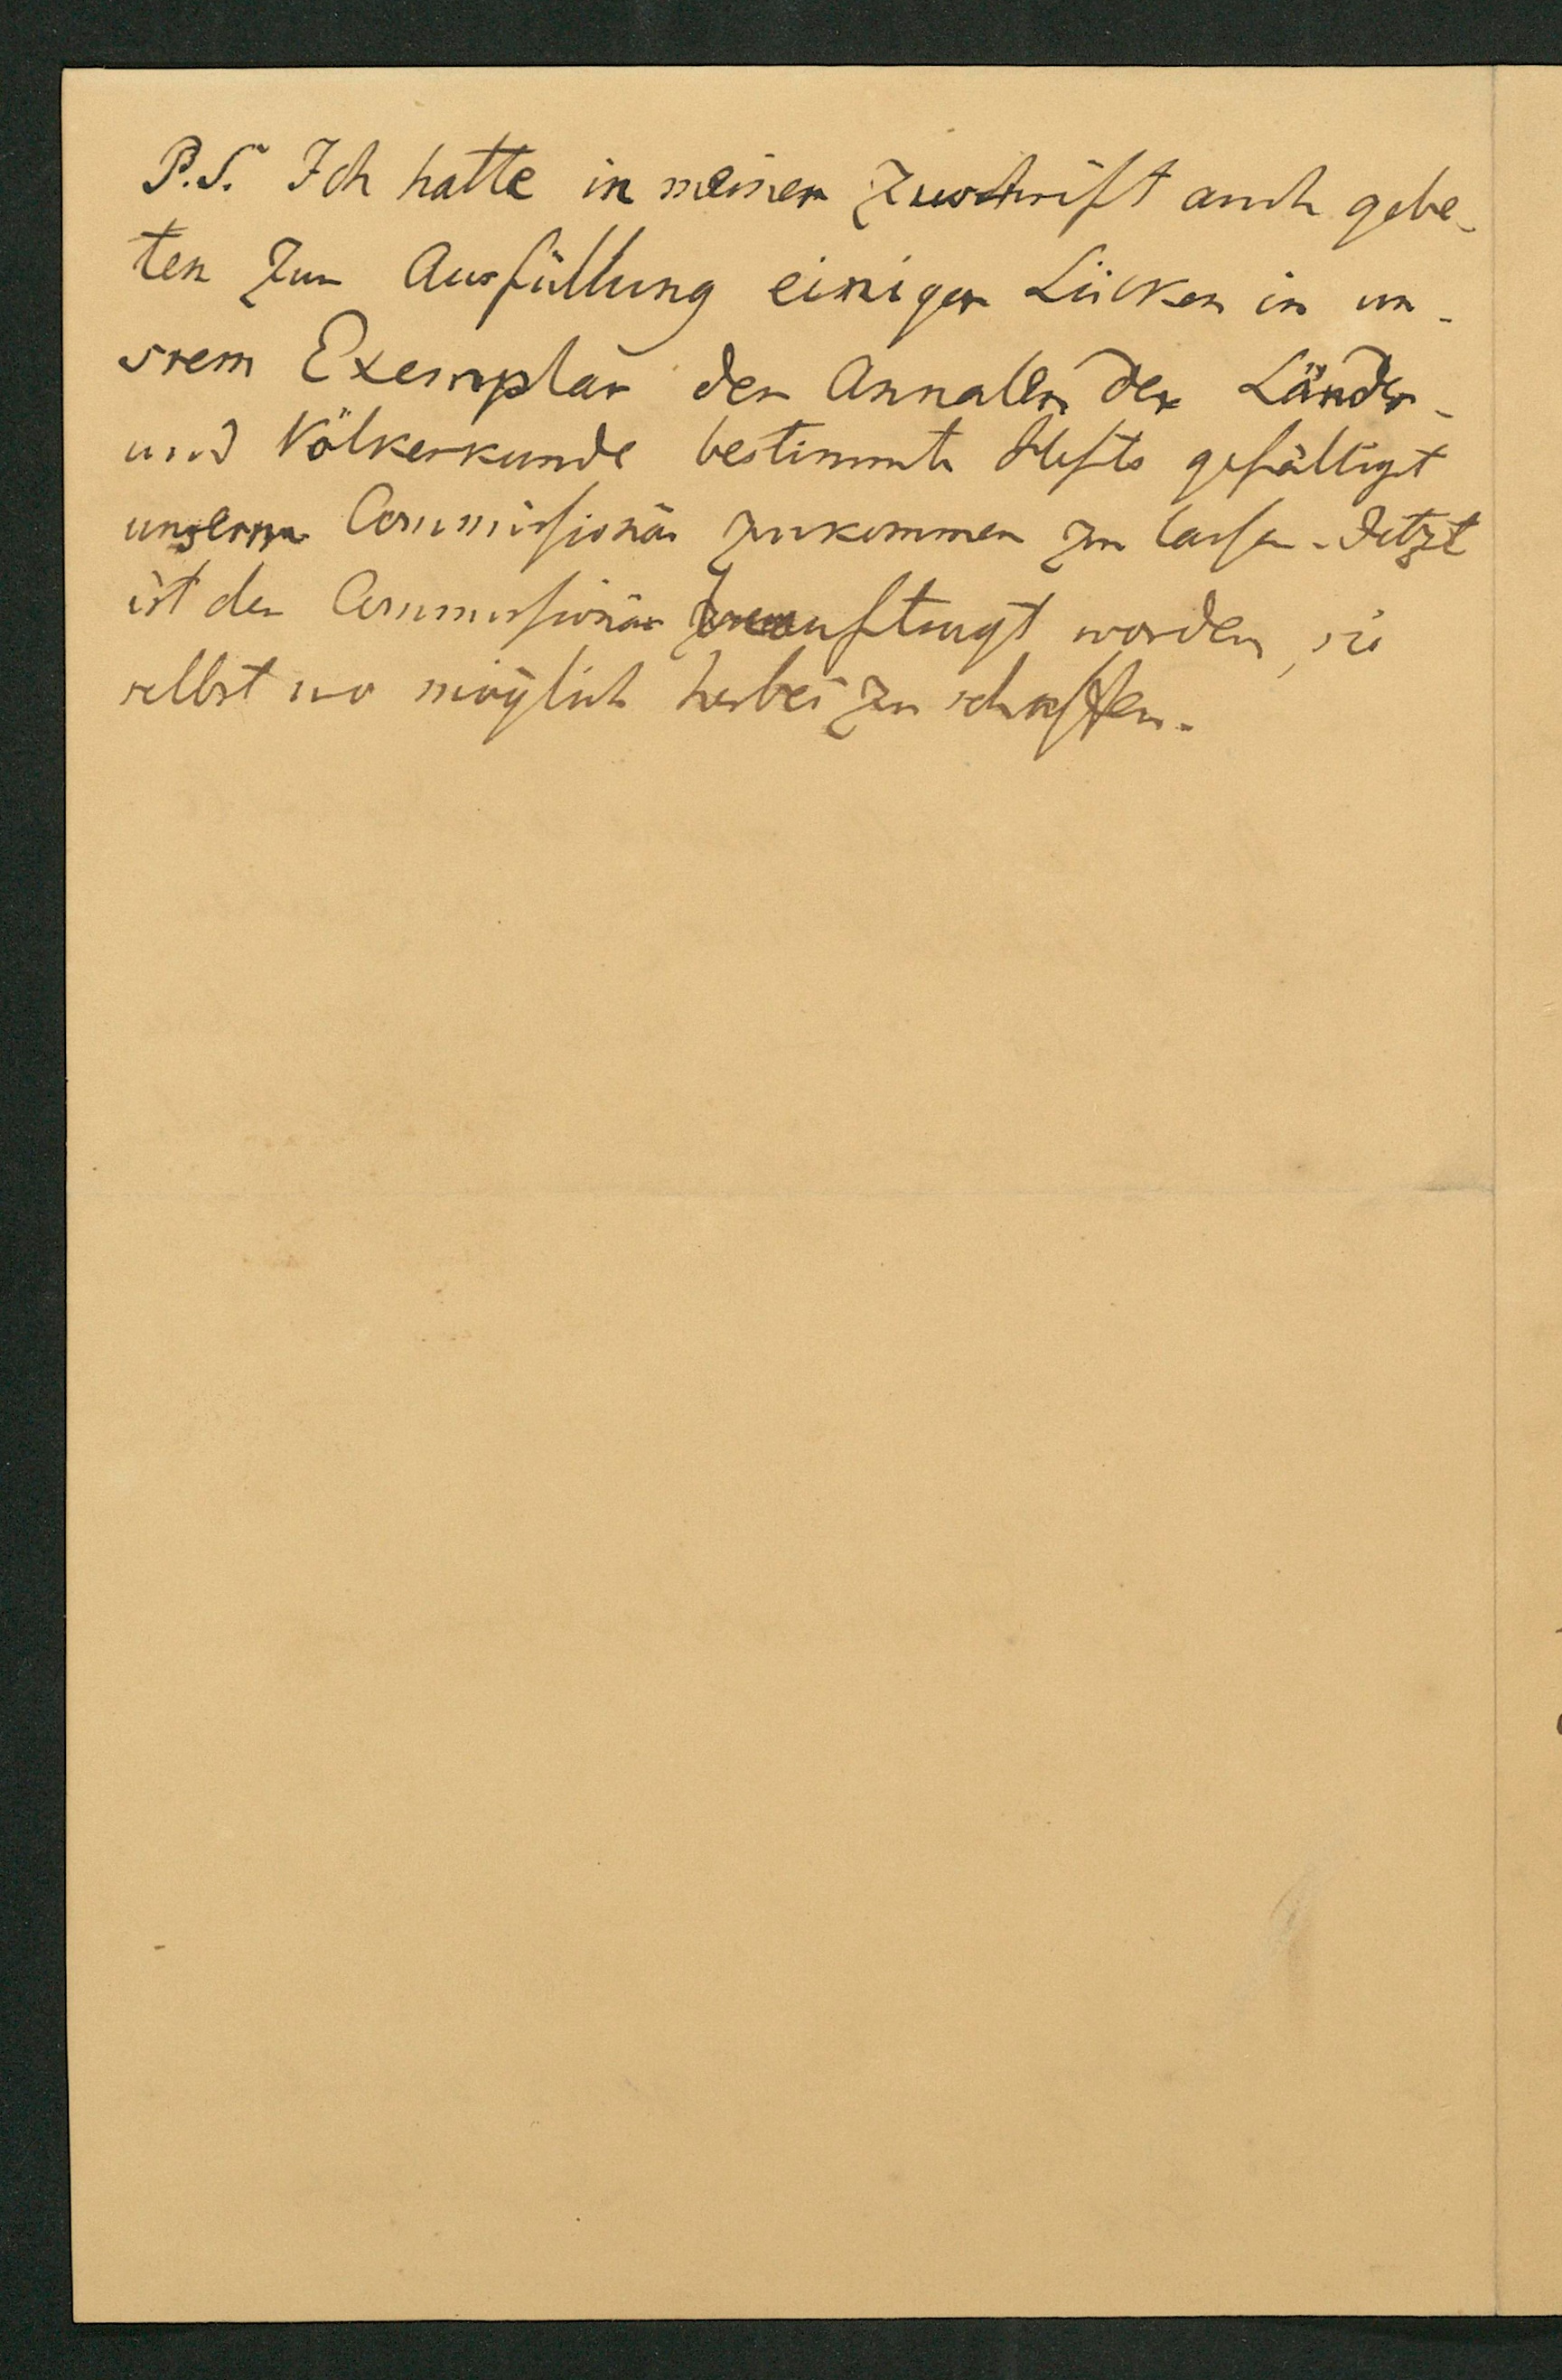 P.S. Ich hatte in meiner Zuschrift auch gebe-
ten zur Ausfüllung einiger Lücken in un-
srem Exemplar der Annalen der Länder-
und Völkerkunde bestimmte Hefte gefälligst
unserm Commissionär zukommen zu lassen. Jetzt
ist der Commissionär beauftragt worden, sie
selbst wo möglich herbei zu schaffen.